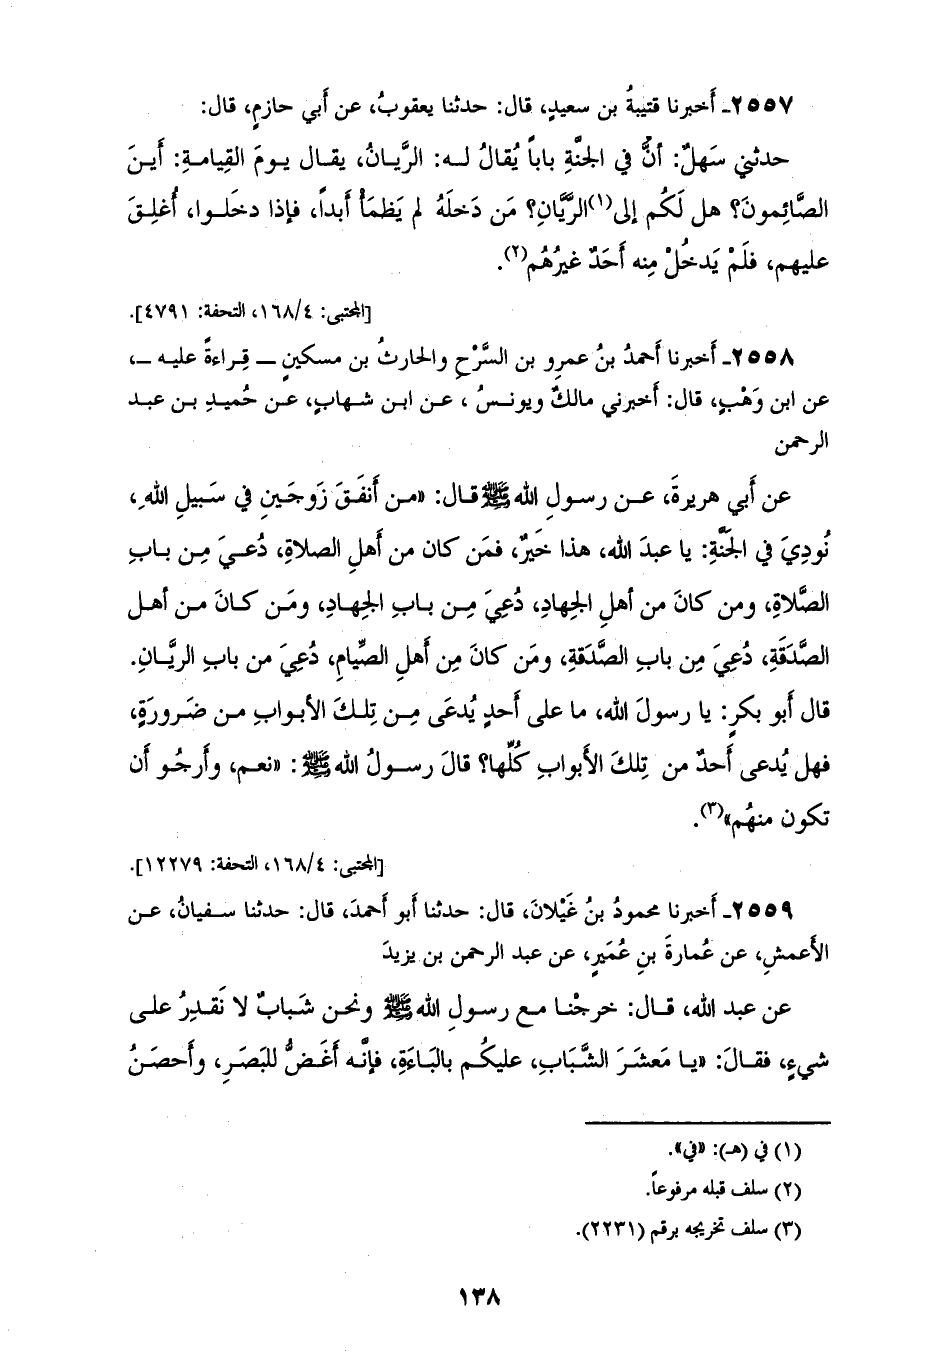 ٢٥٥٧ـ أَخبرنا قتيبةُ بن سعيدٍ، قال: حدثنا يعقوبُ، عن أَبي حازمٍ، قال:
حدثني سَهلٌ: أنَّ في الجنَّةِ باباً يُقالُ لـه: الرَّيـانُ، يقـال يـومَ القِيامـةِ: أَيـنَ
الصَّائِمونَ؟ هل لَكُم إلى(١)الرَّيَّانِ؟ مَن دَخلَهُ لم يَظمَأْ أَبداً، فإذا دخَلـوا، أُغلِـقَ
عليهم، فلَمْ يَدخُلْ مِنه أَحَدٌ غيرُهُم(٢).
[المجتبى: ١٦٨/٤، التحفة: ٤٧٩١].
٢٥٥٨ـ أَخبرنا أَحمدُ بنُ عمرِو بن السَّرْحِ والحارثُ بن مسكينٍ ـ قِراءةً عليه ـ،
عن ابن وَهْبٍ، قال: أَخبرني مالكٌ ويونـسُ ، عـن ابـن شـهابٍ، عـن حُميـدِ بـن عبـد
الرحمن
عن أَبي هريرةَ، عـن رسـولِ اللهِ ﷺ قـال: «مـن أَنفَـقَ زَوجَـينِ في سَـبيلِ اللهِ،
نُودِيَ في الجَنَّةِ: يا عبدَ الله، هذا خَيرٌ، فمَن كان من أَهلِ الصلاةِ، دُعـيَ مِـن بـابِ
الصَّلاةِ، ومن كانَ من أهلِ الجهادِ، دُعِيَ مِـن بـابِ الجهـادِ، ومَـن كـانَ مـن أهـل
الصَّدَقَةِ، دُعِيَ مِن بابِ الصَّدَقةِ، ومَن كانَ مِن أَهلِ الصِّيامِ، دُعِيَ من بابِ الريَّـانِ.
قال أَبو بكرٍ: يا رسولَ الله، ما على أَحدٍ يُدعَى مِـن تِلـكَ الأبـوابِ مـن ضَـرورةٍ،
فهل يُدعى أَحدٌ من تِلكَ الأَبوابِ كُلِّها؟ قالَ رسـولُ الله ﷺ : «نعـم، وأَرجُـو أَن
تكون منهُم»(٣).
[المجتبى: ١٦٨/٤، التحفة: ١٢٢٧٩].
٢٥٥٩ـ أَخبرنا محمودُ بنُ غَيْلانَ، قال: حدثنا أَبو أَحمدَ، قال: حدثنا سـفيانُ، عـن
الأَعمشِ، عن عُمارةَ بنِ عُمَيرٍ، عن عبد الرحمن بن يزيدَ
عن عبد الله، قـال: خرجْنـا مـع رسـولِ الله ﷺ ونحـن شَـبابٌ لا نَقـدِرُ علـى
شيءٍ، فقـالَ: «يـا مَعشـرَ الشَّبابِ، عليكُـم بالبَاءَةِ، فإنَّـه أَغَـضُّ للبَصَـرِ، وأَحصَـنُ
(١) في (هـ): «في».
(٢) سلف قبله مرفوعاً.
(٣) سلف تخريجه برقم (٢٢٣١).
١٣٨